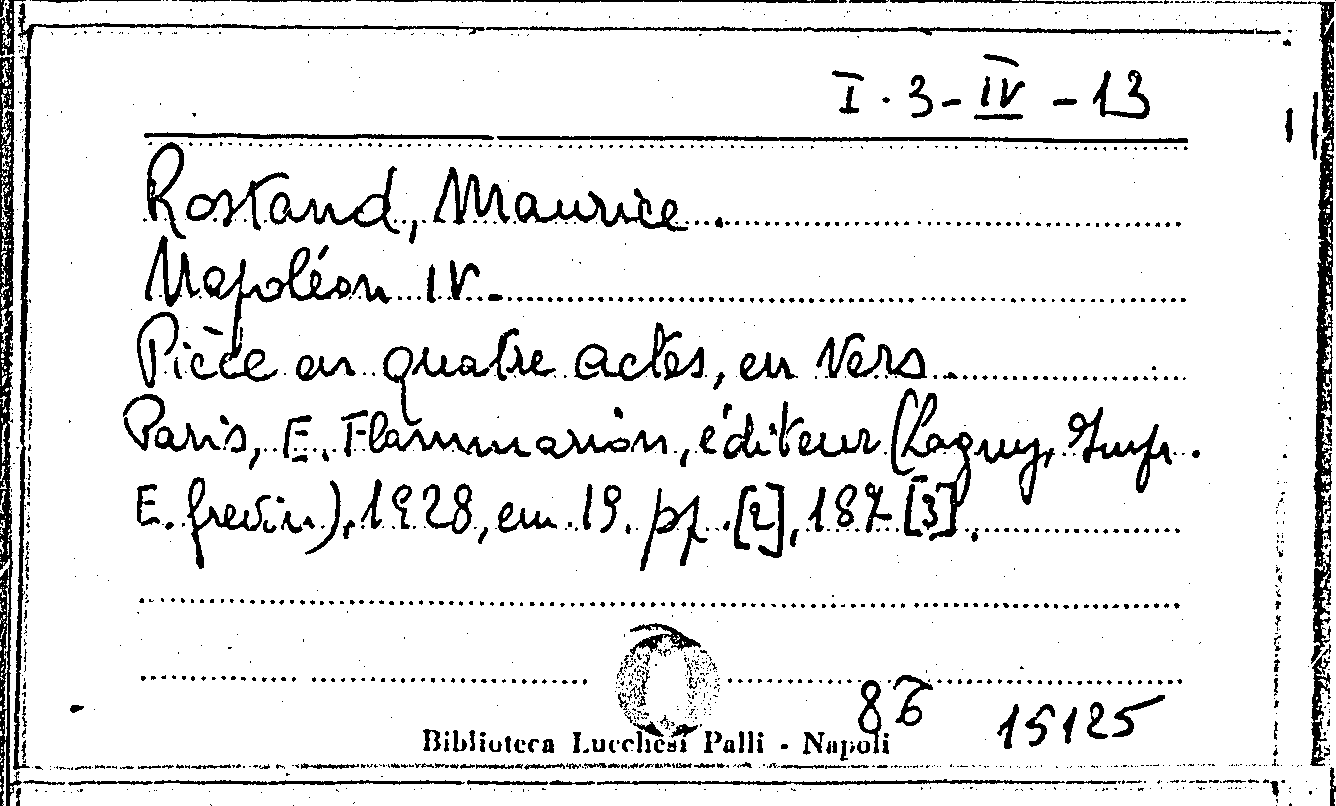 I. 3 - IV - 13
Rostand, Maurice.
Napoléon IV.
Pièce en quatre actes, en vers.
Paris, E. Flammarion, éditeur (Lagny, Impr.
E. Grevin), 1928, cm. 19. pp. [2], 187 [3].
15125
Biblioteca Lucchesi Palli - Napoli